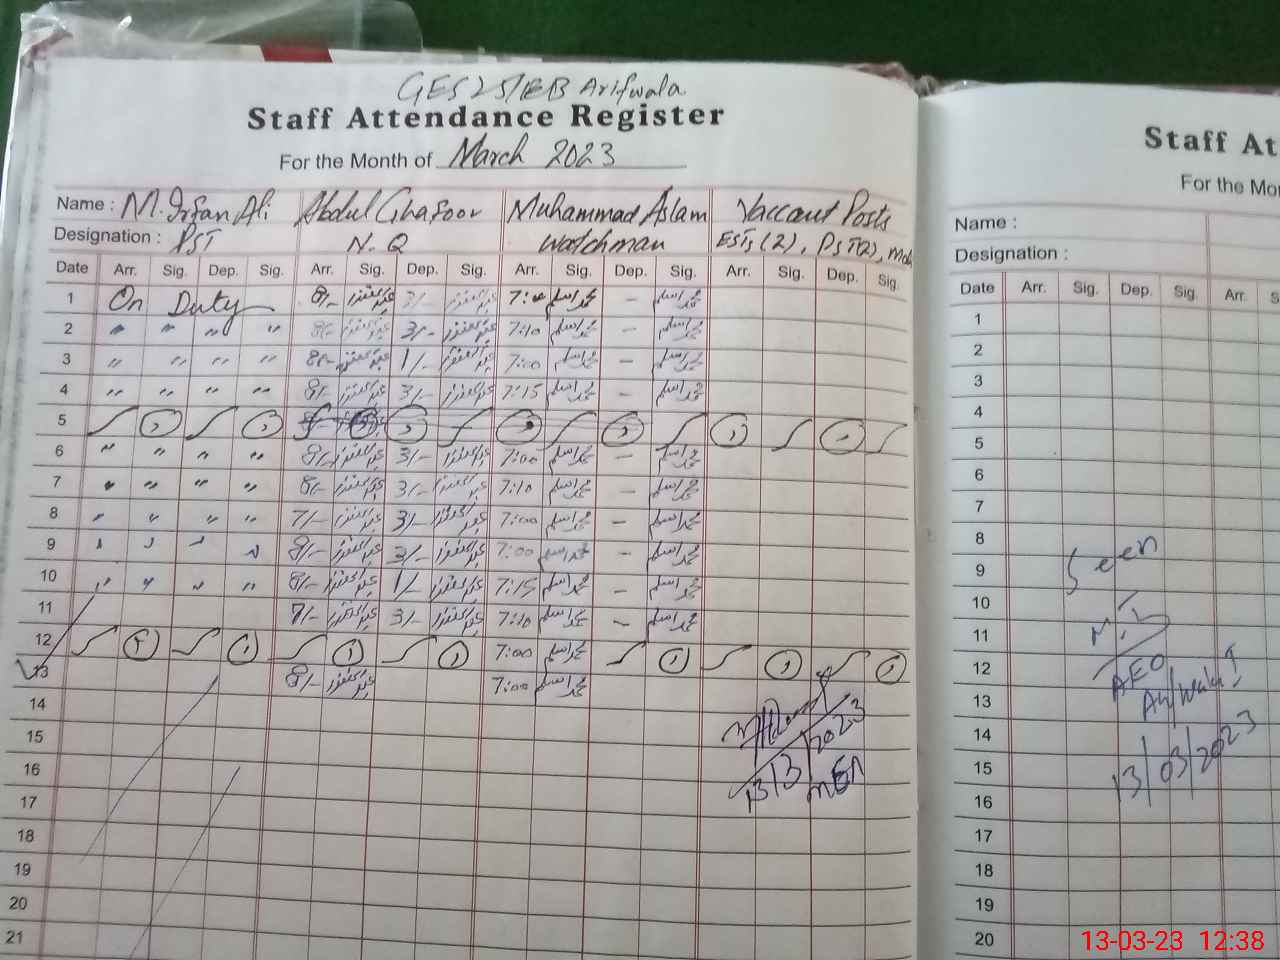 GES 25/EB Arifwala
Staff Attendance Register
For the Month of March 2023
Name : M. Irfan Ali Abdul Ghafoor Muhammad Aslam Vaccant Posts
Designation : PST N.Q Watchman ESTs (2), PST(2),
Date Arr. Sig. Dep. Sig. Arr. Sig. Dep. Sig. Arr. Sig. Dep. Sig. Arr. Sig. Dep. Sig.
1 On Duty 8/- 3/- 7:00 محمد اسلم - محمد اسلم
2 " " " " 8/- 3/- 7:10 محمد اسلم - محمد اسلم
3 " " " " 8/- 1/- 7:00 محمد اسلم - محمد اسلم
4 " " " " 8/- 3/- 7:15 محمد اسلم - محمد اسلم
5
6 " " " " 8/- 3/- 7:00 محمد اسلم - محمد اسلم
7 " " " " 8/- 3/- 7:10 محمد اسلم - محمد اسلم
8 " " " " 7/- 3/- 7:00 محمد اسلم - محمد اسلم
9 " " " " 8/- 3/- 7:00 محمد اسلم - محمد اسلم
10 " " " " 8/- 1/- 7:15 محمد اسلم - محمد اسلم
11 7/- 3/- 7:10 محمد اسلم - محمد اسلم
12 7:00 محمد اسلم
13 8/- 7:00 محمد اسلم
14
15
16
17
18
19
20
21
13/3/2023
MEA
Staff At
For the Mon
Name :
Designation :
Date Arr. Sig. Dep. Sig. Arr. S
1
2
3
4
5
6
7
8
9
10
11
12
13
14
15
16
17
18
19
20
Seen
AEO
13/03/2023
13-03-23 12:38